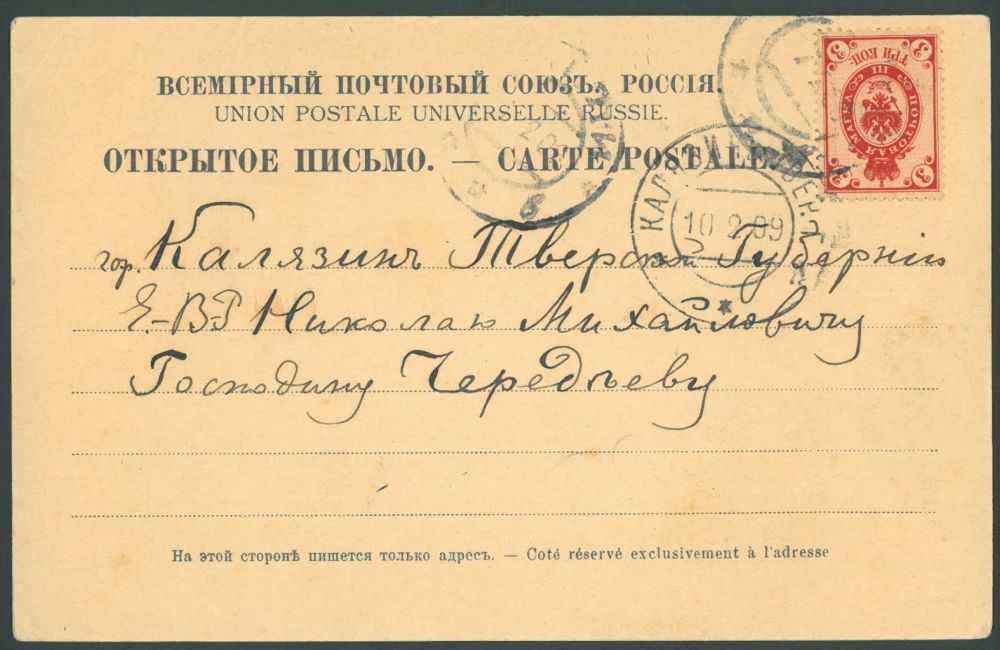 ВСЕМІРНЫЙ ПОЧТОВЫЙ СОЮЗЪ. РОССІЯ.
UNION POSTALE UNIVERSELLE RUSSIE.
ОТКРЫТОЕ ПИСЬМО. — CARTE POSTALE.
3 3
ТРИ КОП.
ПОЧТОВАЯ МАРКА
III
3 3
10 2 09
гор. Калязинъ Тверской Губерніи
Е.-В-Г Николаю Михайловичу
Господину Чередѣеву
На этой сторонѣ пишется только адресъ. — Coté réservé exclusivement à l'adresse